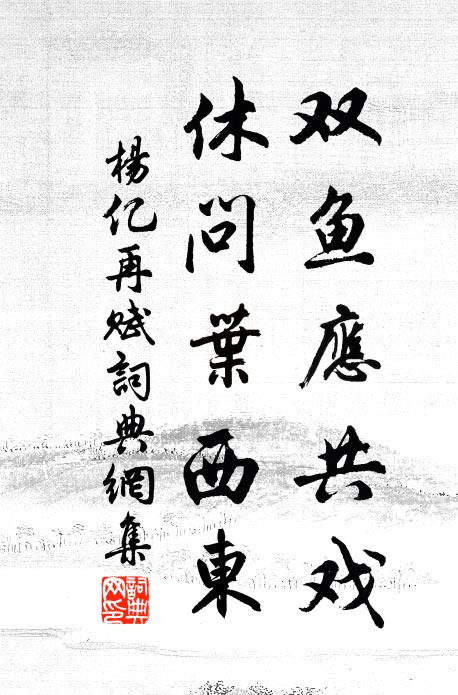 双鱼應共戏
休問葉西東
楊亿再赋詞典網集
詞典網印